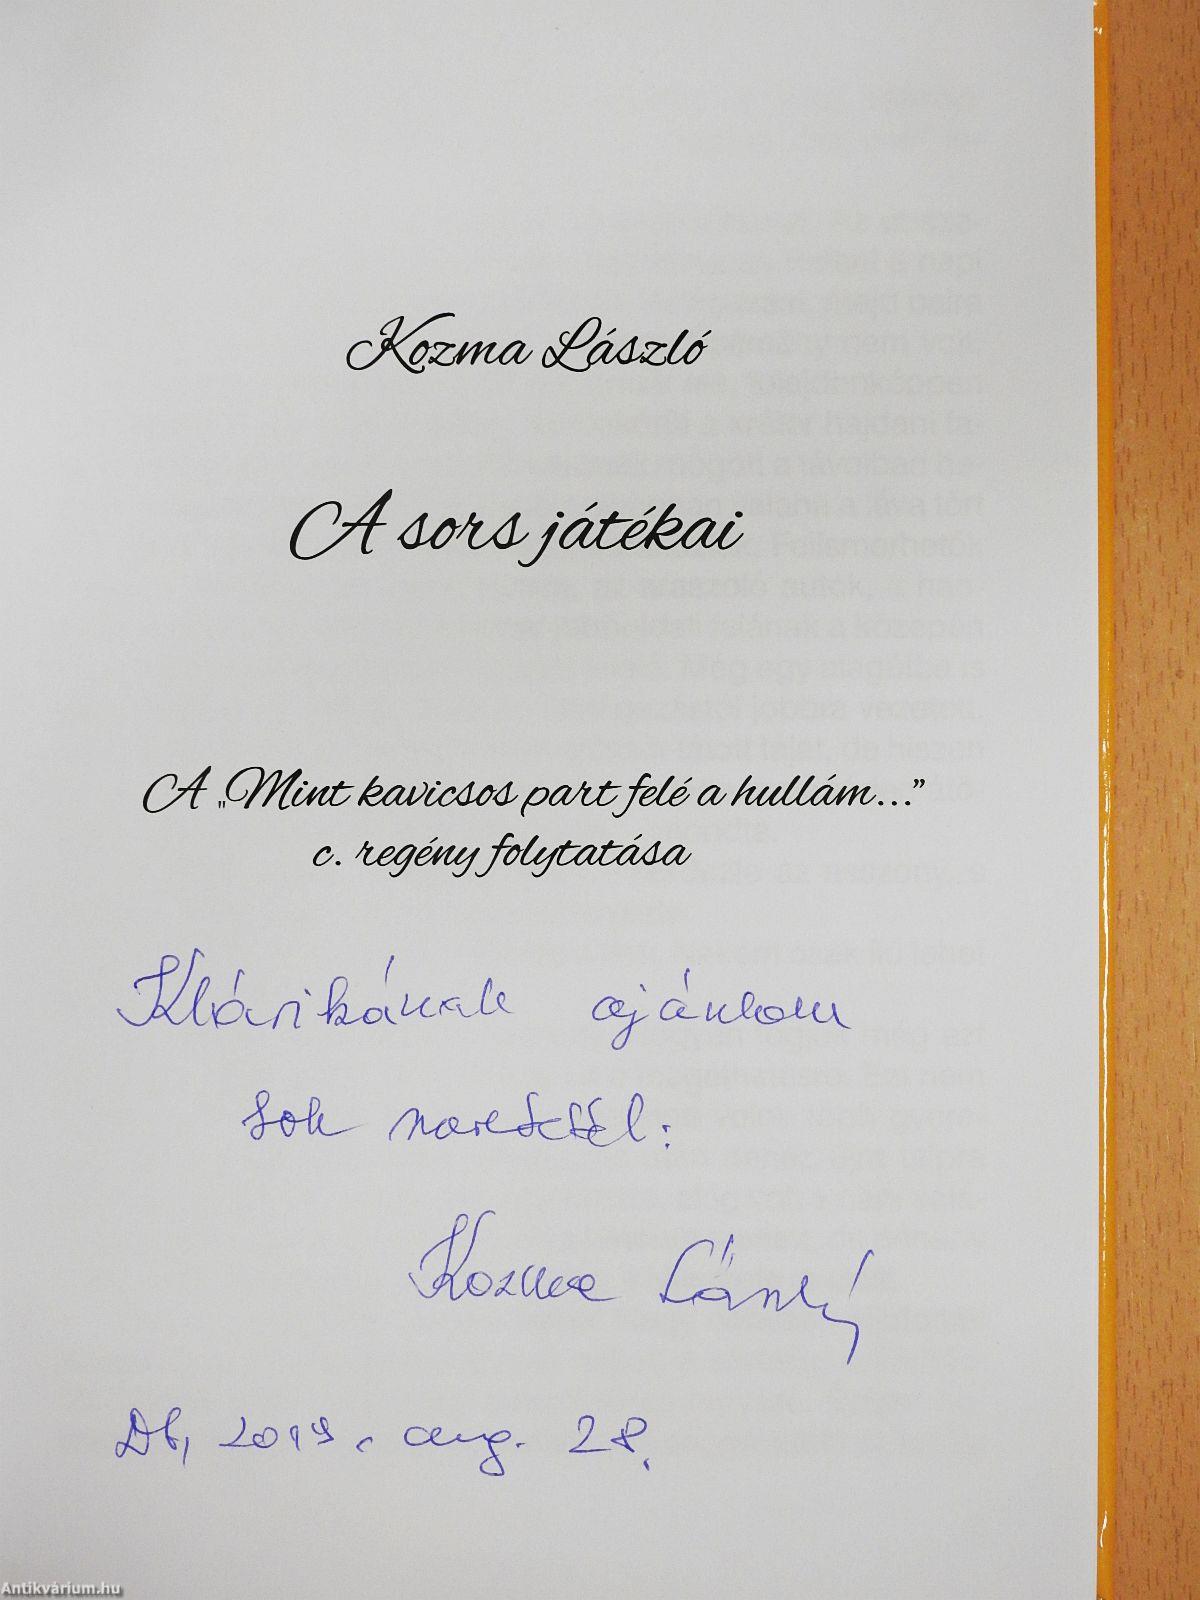 Kozma László
A sors játékai
A „Mint kavicsos part felé a hullám...”
c. regény folytatása
Klárikának ajánlom
sok szeretettel:
Kozma László
Db, 2019. aug. 28.
Antikvárium.hu